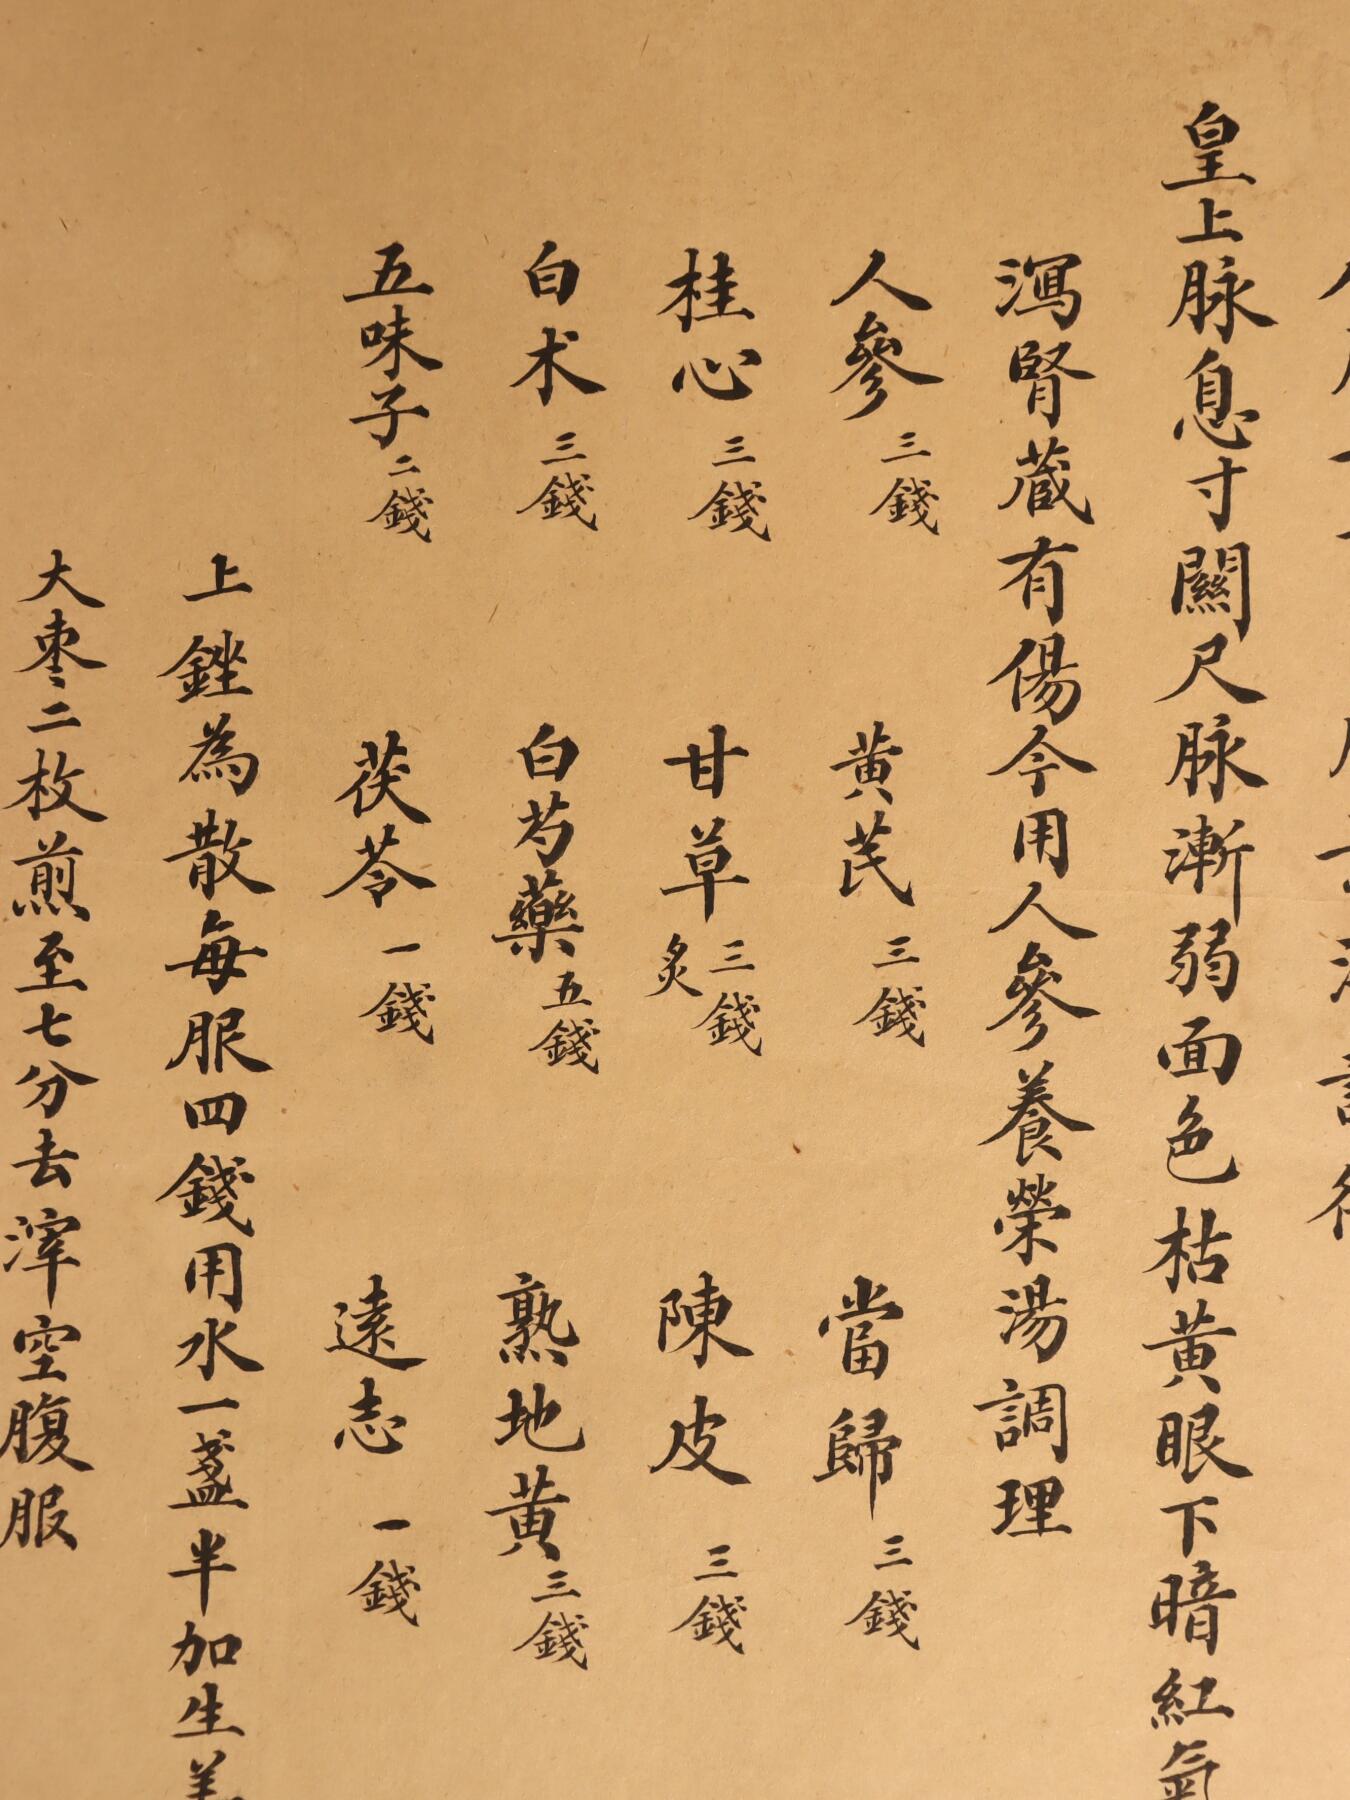 皇上脉息寸關尺脉漸弱面色枯黄眼下暗紅氣
瀉腎蔵有傷今用人參養榮湯調理
人參三錢 黄芪三錢 當歸三錢
桂心三錢 甘草三錢炙 陳皮三錢
白术三錢 白芍藥五錢 熟地黄三錢
五味子二錢 茯苓一錢 遠志一錢
上銼為散每服四錢用水一盞半加生姜
大枣二枚煎至七分去滓空腹服